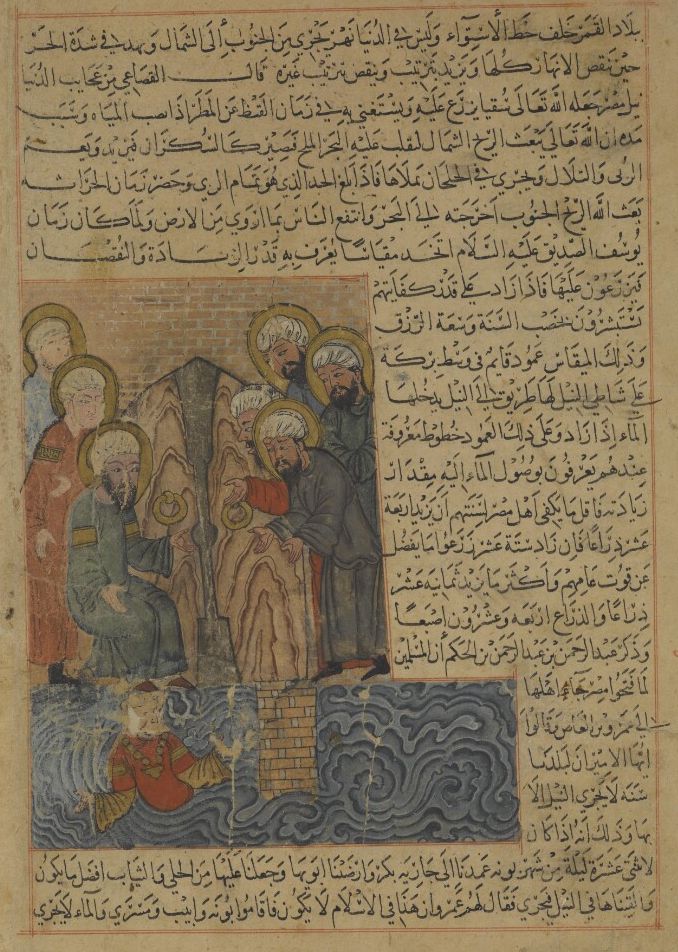 بلاد القمر خلف خط الاستواء وليس في الدنيا نهر يجري من الجنوب الى الشمال ويمد في شدة الحر
حين تنقص الانهار كلها ويزيد بترتيب وينقص بترتيب غيره قال القضاعي من عجايب الدنيا
نيل مصر جعله الله تعالى سقيا يزرع عليه ويستغنى به في زمان القيظ عن المطر اذا نضب المياه وسبب
مده ان الله تعالى يبعث الريح الشمال فيقلب عليه البحر الملح فيصير كالسكر له فيزيد ويعم
الربى والتلال ويجري في الخلجان يملاها فاذا بلغ الحد الذي هو تمام الري وحضر زمان الحراثة
بعث الله الريح الجنوب اخرجته الى البحر وانتفع الناس بما اروى من الارض ولما كان زمان
يوسف الصديق عليه السلام اتخذ مقياسا يعرف به قدر الزيادة والنقصان
فيزرعون عليها فاذا زاد على قدر كفايتهم
يستبشرون بخصب السنة وسعة الرزق
وذلك المقياس عمود قائم في وسط بركة
على شاطئ النيل لها طريق الى النيل يدخلها
الماء اذا زاد وعلى ذلك العمود خطوط معروفة
عندهم يعرفون بوصول الماء اليه مقدار
زيادته فاقل ما يكفي اهل مصر لسنتهم ان يزيد اربعة
عشر ذراعا فان زاد ستة عشر زرعوا ما يفضل
عن قوت عامهم واكثر ما يزيد ثمانية عشر
ذراعا والذراع اربعة وعشرون اصبعا
وذكر عبد الرحمن بن عبد الرحمن بن الحكم ان المسلمين
لما فتحوا مصر جاء اهلها
الى عمرو بن العاص وقالوا
ايها الامير ان لبلدنا
سنة لا يجري النيل الا
بها وذلك انه اذا كان
لاثنتي عشرة ليلة من شهر بونه عمدنا الى جارية بكر وارضينا ابويها وجعلنا عليها من الحلي والثياب افضل ما يكون
والقيناها في النيل فيجري فقال لهم عمرو ان هذا في الاسلام لا يكون فاقاموا بونه وابيب ومسري والماء لا يجري